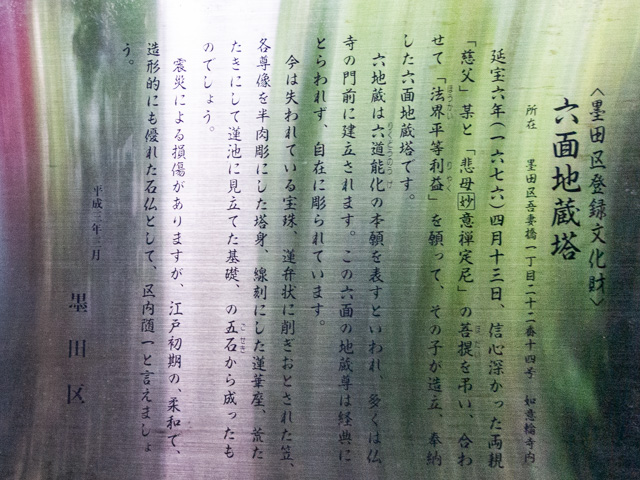 〈墨田区登録文化財〉
六面地蔵塔
所在 墨田区吾妻橋一丁目二十二番十四号 如意輪寺内
延宝六年(一六七六)四月十三日、信心深かった両親
「慈父」某と「悲母妙意禅定尼」の菩提を弔い、合わ
せて「法界平等利益」を願って、その子が造立、奉納
した六面地蔵塔です。
六地蔵は六道能化の本願を表すといわれ、多くは仏
寺の門前に建立されます。この六面の地蔵尊は経典に
とらわれず、自在に彫られています。
今は失われている宝珠、蓮弁状に削ぎおとされた笠、
各尊像を半肉彫にした塔身、線刻にした蓮華座、荒た
たきにして蓮池に見立てた基礎、の五石から成ったも
のでしょう。
震災による損傷がありますが、江戸初期の、柔和で、
造形的にも優れた石仏として、区内随一と言えましょ
う。
平成三年 月
墨田区